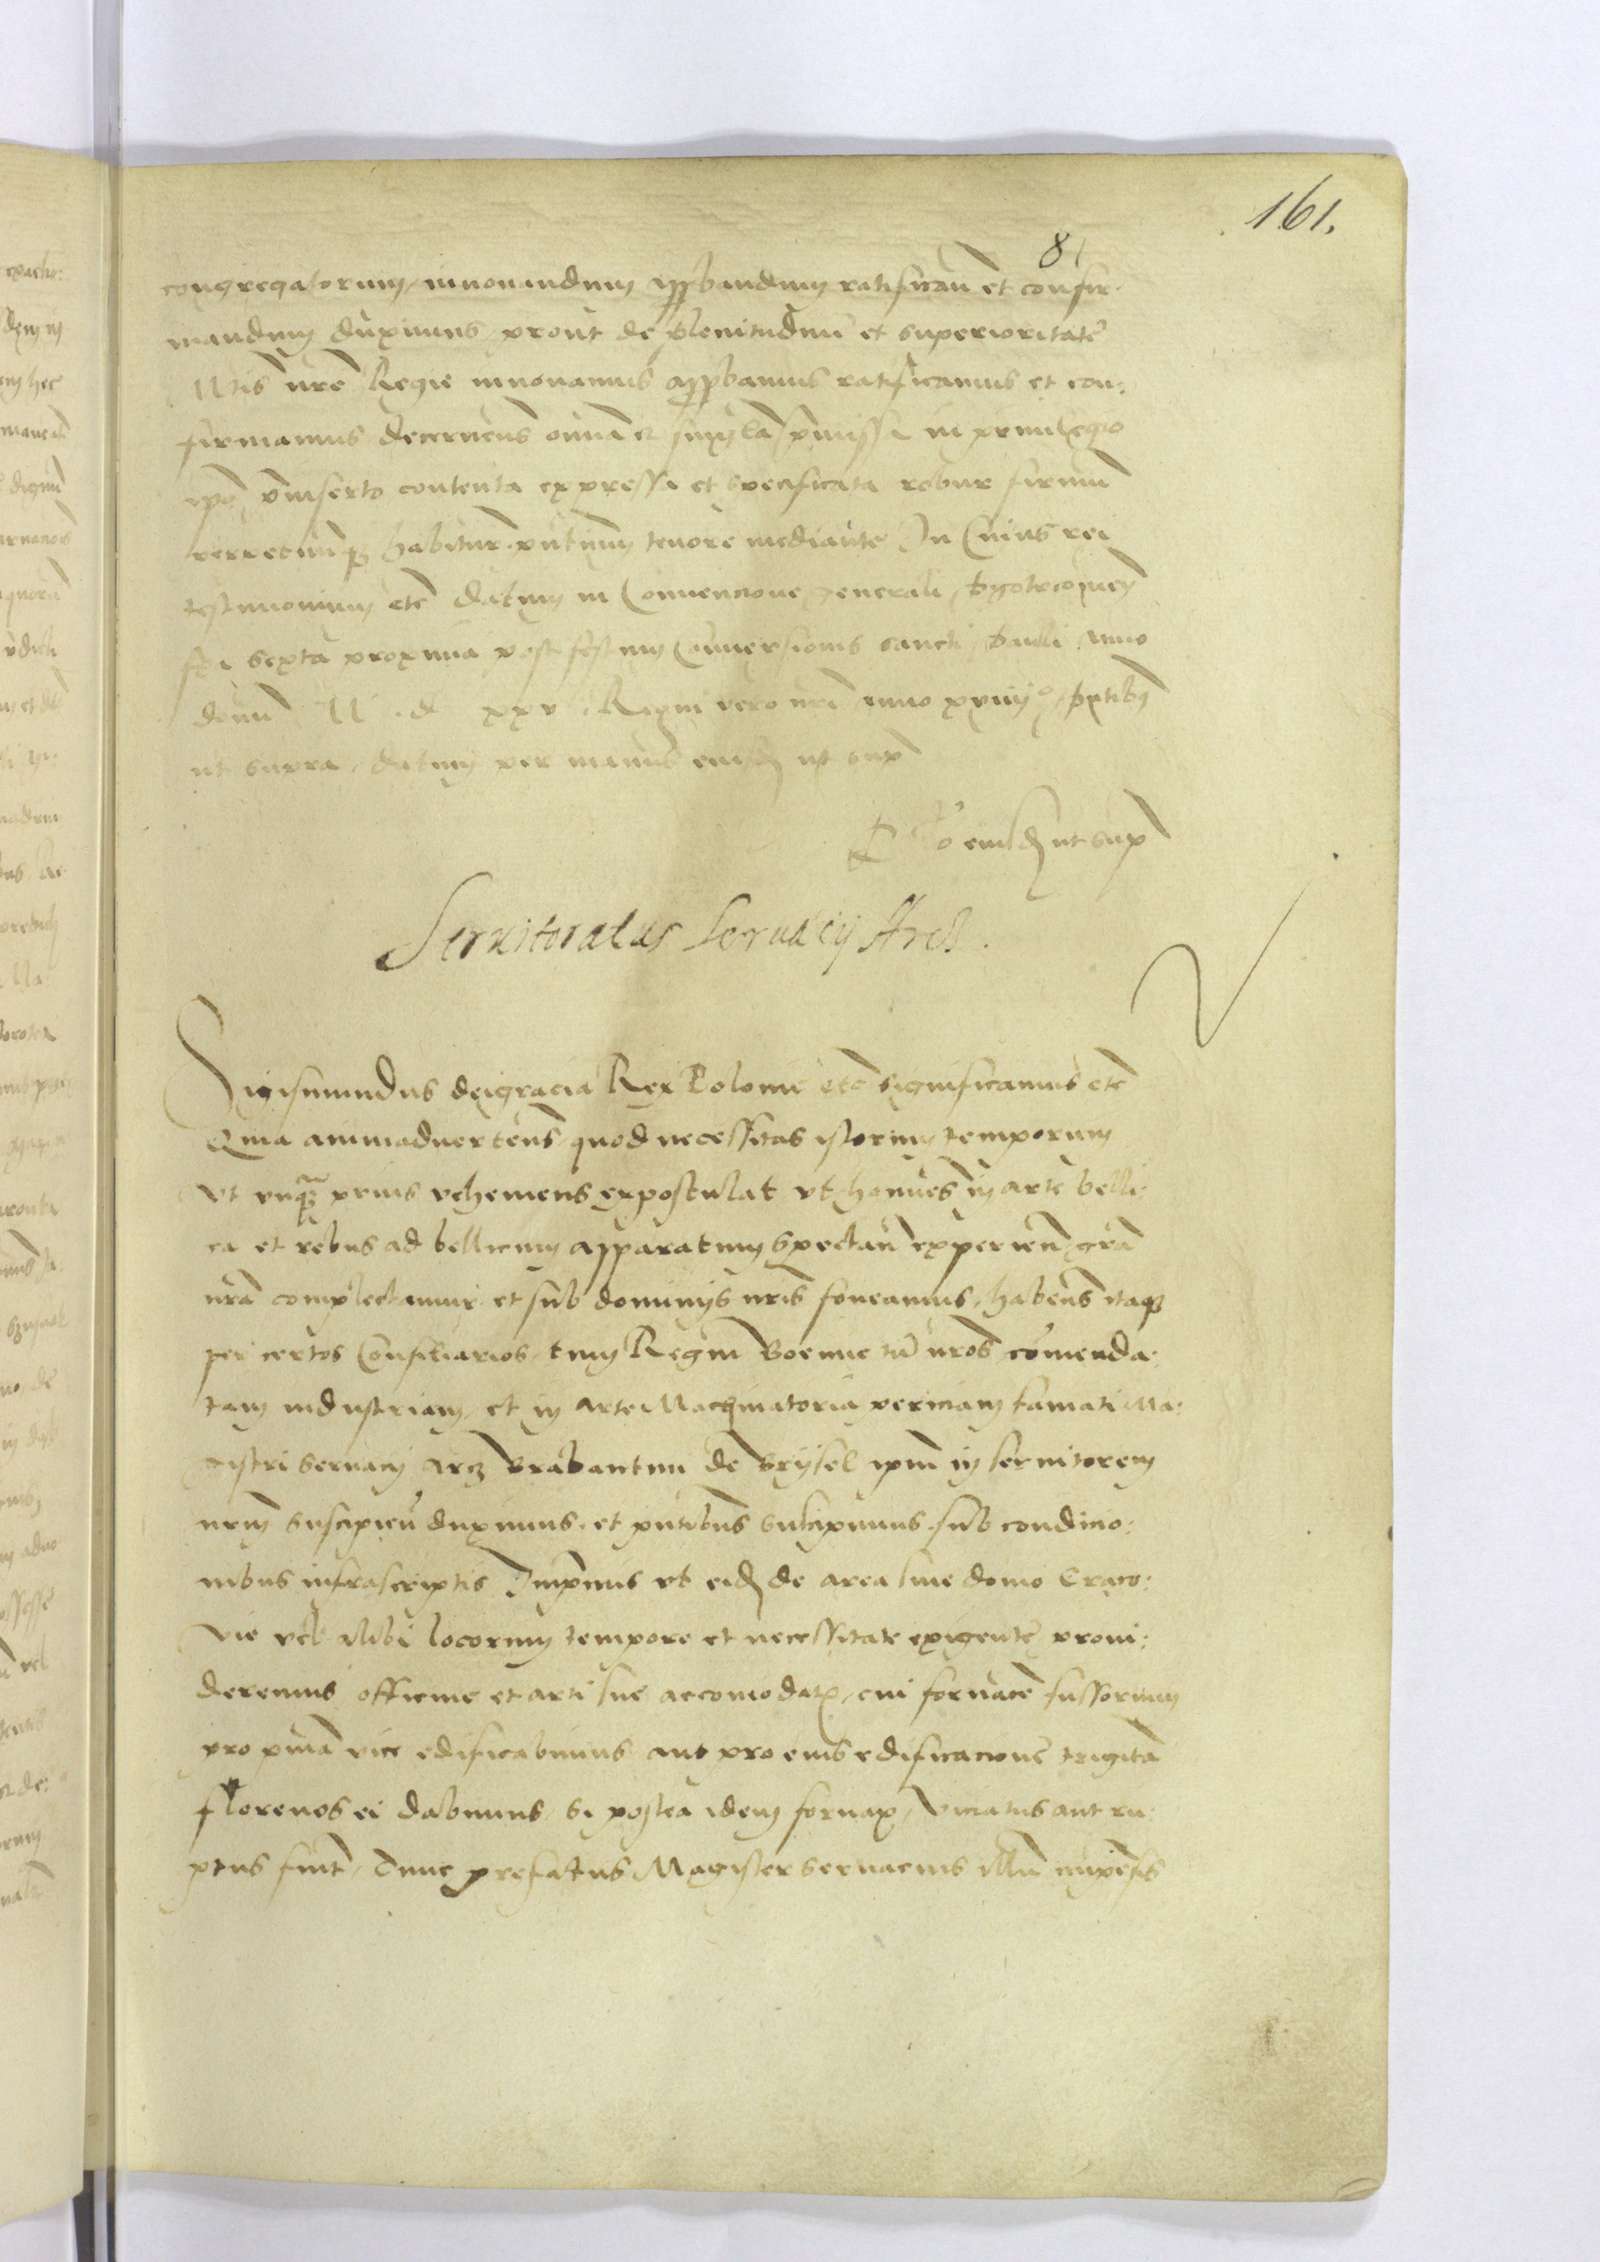 161.
81
congregatorum innouandum appbandum ratifican et confir-
mandum duximus prout de plenitudine et superioritate
Mtis nre Regie innouamus appbamus ratificamus et con:
firmamus decernens omnia et singula pmissa in priuilegio
ipo pinserto contenta expressa et specificata robur firmum
habitur pntium tenore mediante In Cuius rei
testimonium etc datum in Conuencione generali Pyotrcouien
feria sexta proxima post festum Conuersionis sancti Pauli Anno
domi M d xxv Regni vero nri anno xviiij° pntibus
ut supra datum per manus eiusdem ut supra
R° eiusdem ut supra
Seruitoratus Seruacij Arch.
Sigismundus dei gracia Rex Polonie etc Significamus etc
Quia animaduertens quod necessitas istorum temporum
vt vnquam prius vehemens expostulat vt homines in arte belli
ca et rebus ad bellicum apparatum spectan experien gra
nra complectamur et sub dominijs nris foueamus, habens itaque
per certos Consiliarios tum Regni Boemie tum nros comenda:
tam industriam et in arte Machinatoria periciam famati Ma:
gistri Seruacij Arcz Brabantini de Brysel ipm in seruitorem
nrum suscipien duximus et pntibus suscipimus sub condicio:
nibus infrascriptis Inprimis vt eidem de area siue domo Craco:
vie vel alibi locorum tempore et necessitate exigente proui:
deremus officine et arti sue accomodate, cui fornacem fussorium
pro prima vice edificabimus aut pro eius edificacione triginta
florenos ei dabimus, Si postea idem fornax viciatus aut ru:
ptus fuit, tunc prefatus Magister Seruacius illum impensis